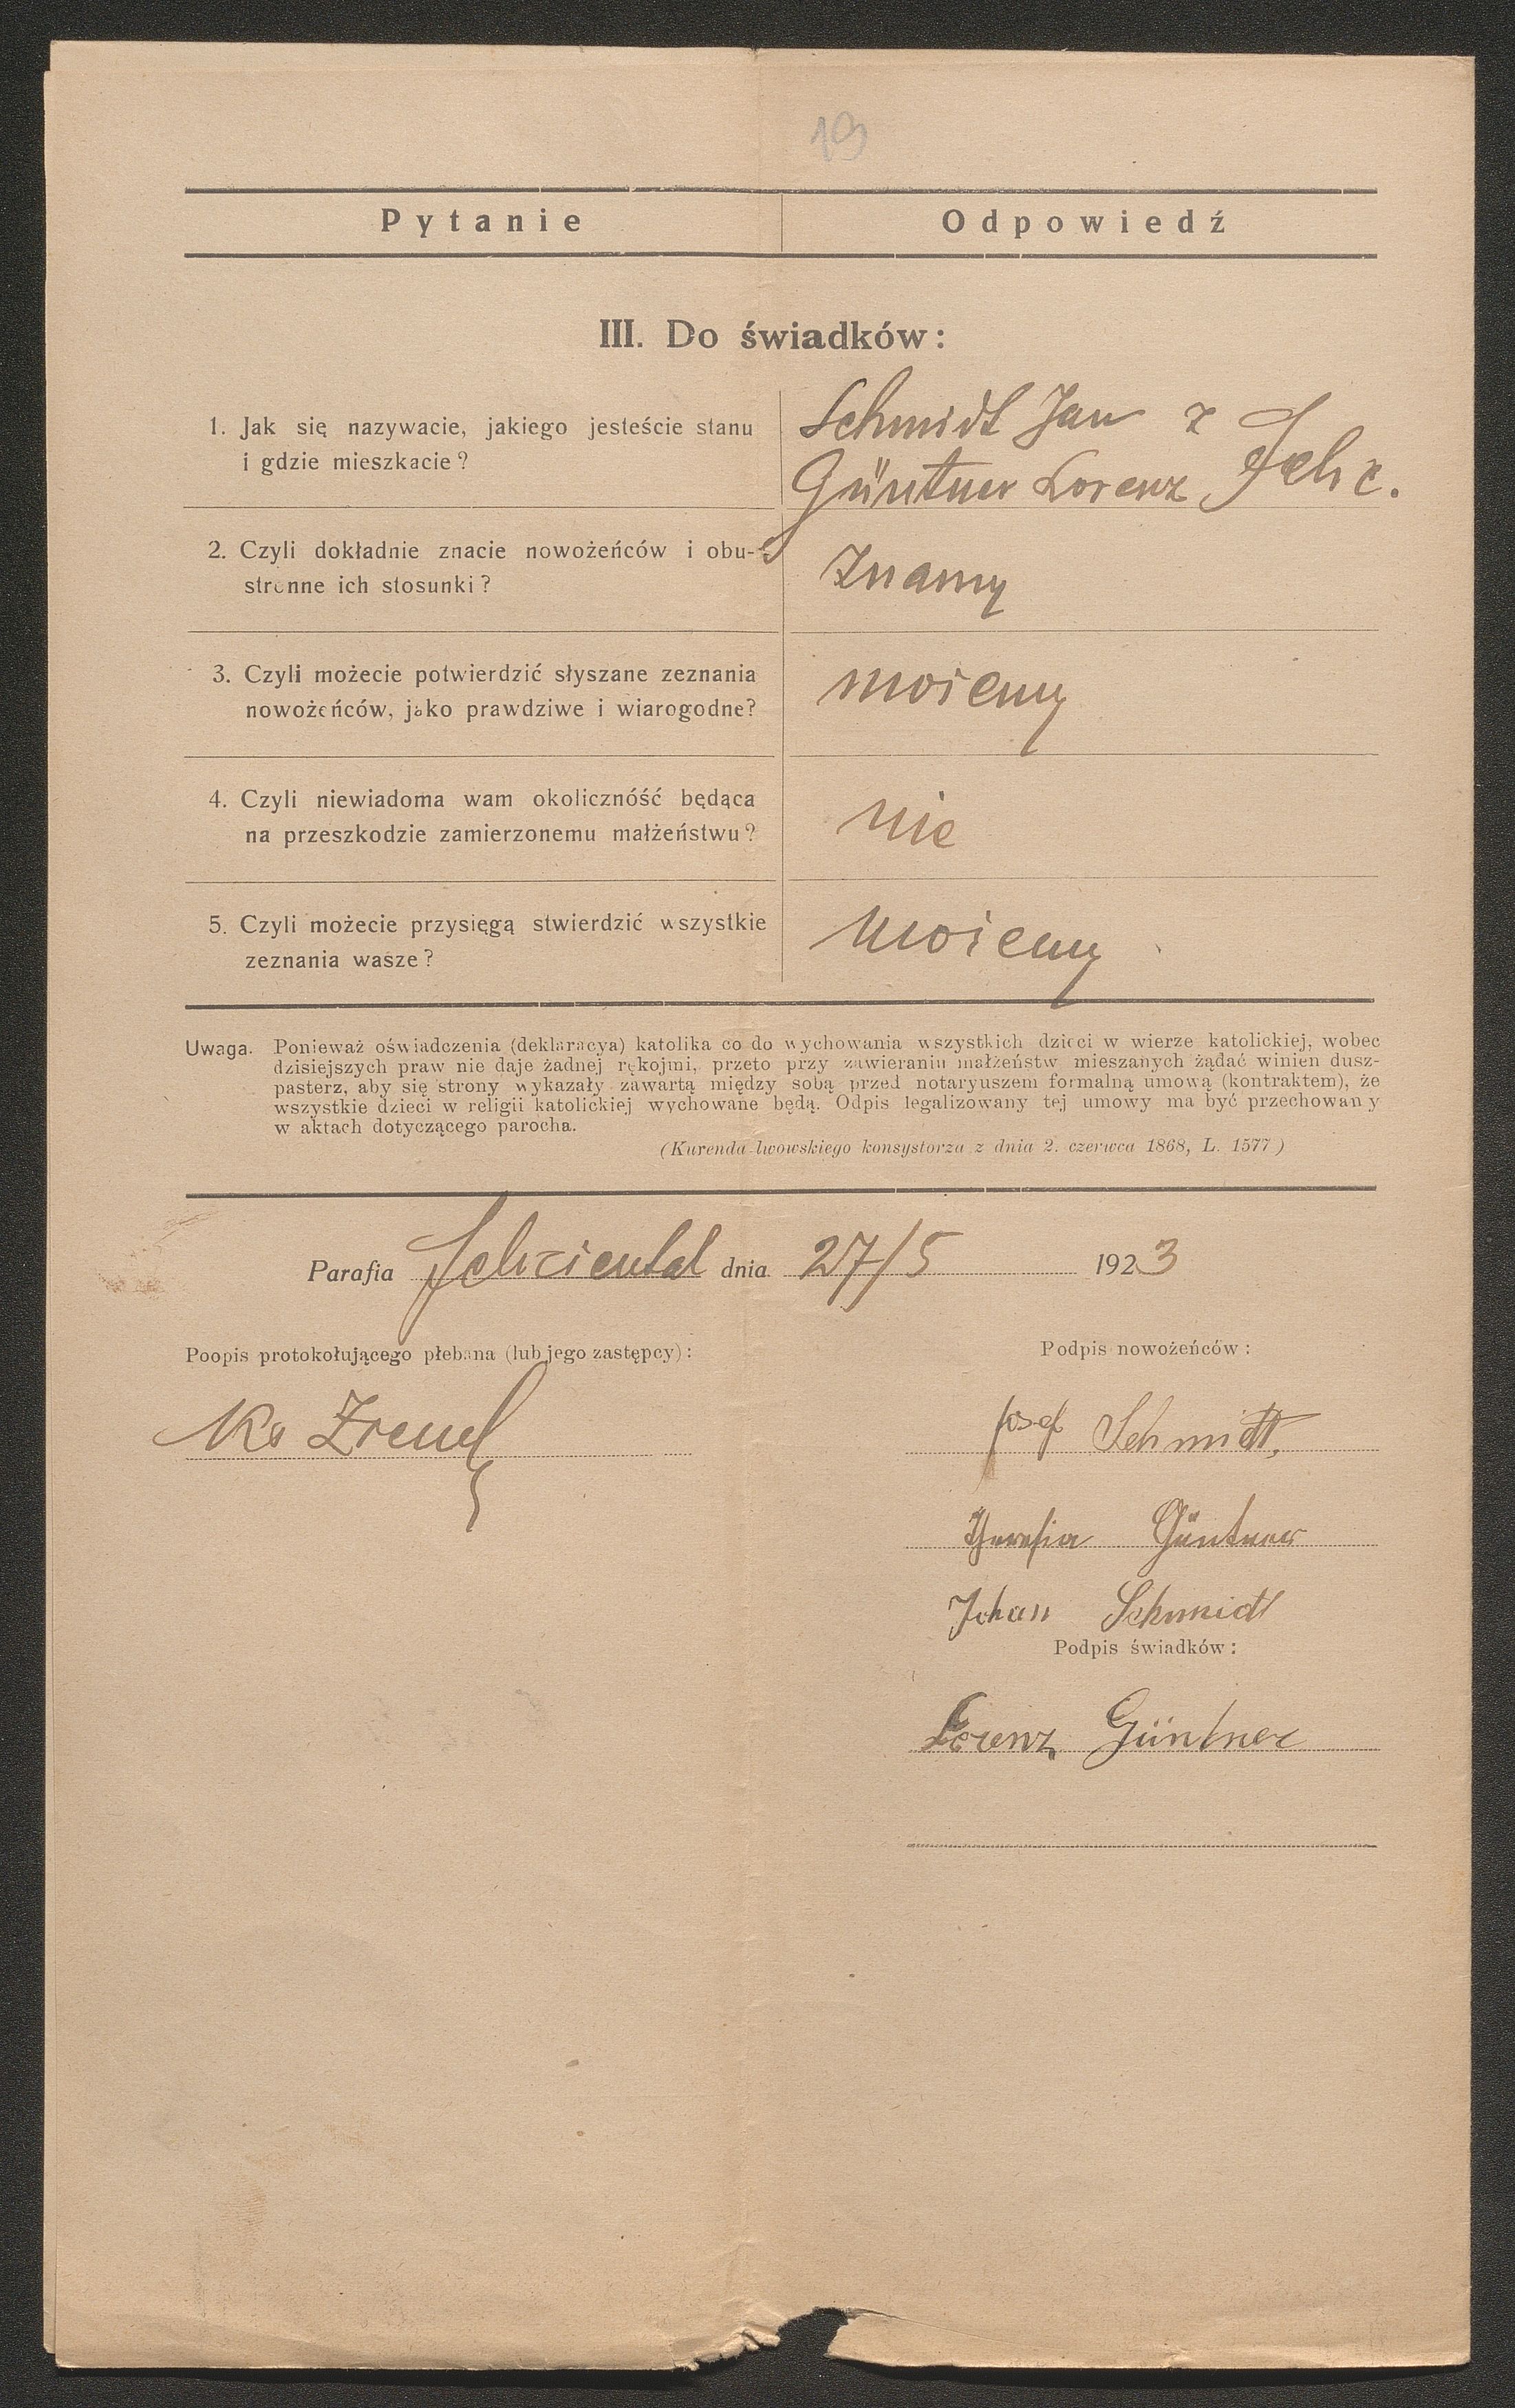 19
Pytanie
Odpowiedź
III. Do świadków:
1. Jak się nazywacie, jakiego jesteście stanu
i gdzie mieszkacie?
Schmidt Jan z
Güntner Lorenz Felic.
2. Czyli dokładnie znacie nowożeńców i obu-
stronne ich stosunki?
Znamy
3. Czyli możecie potwierdzić słyszane zeznania
nowożeńców, jako prawdziwe i wiarogodne?
możemy
4. Czyli niewiadoma wam okolicznóść będąca
na przeszkodzie zamierzonemu małżeństwu?
nie
5. Czyli możecie przysięgą stwierdzić wszystkie
zeznania wasze?
możemy
Uwaga. Ponieważ oświadczenia (deklaracya) katolika co do wychowania wszystkich dzieci w wierze katolickiej, wobec
dzisiejszych praw nie daje żadnej rękojmi, przeto przy zawieraniu małżeństw mieszanych żądać winien dusz-
pasterz, aby się strony wykazały zawartą między sobą przed notaryuszem formalną umową (kontraktem), że
wszystkie dzieci w religii katolickiej wychowane będą. Odpis legalizowany tej umowy ma być przechowany
w aktach dotyczącego parocha.
(Kurenda lwowskiego konsystorza z dnia 2. czerwca 1868, L. 1577)
Parafia Feliziental dnia 27/5 1923
Poopis protokołującego plebana (lub jego zastępcy):
Podpis nowożeńców:
Ks
Josef Schmidt,
Theresia Güntner
Johan Schmidt
Podpis świadków:
Lorenz Güntner